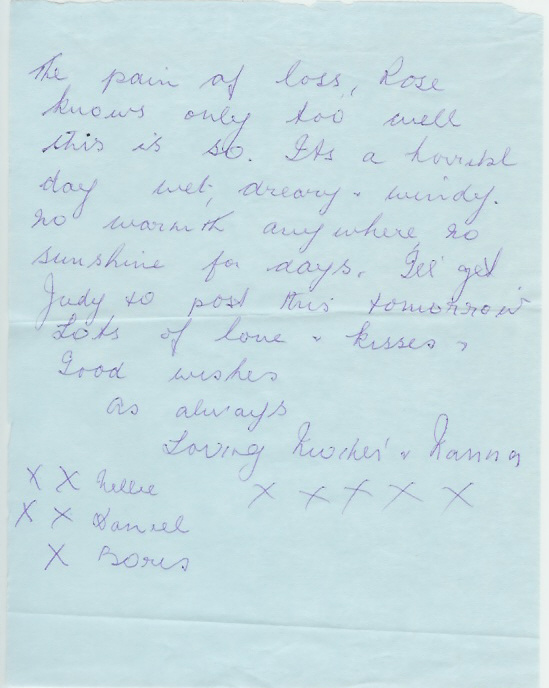 The pain of loss, Rose
knows only too well
this is so. Its a horribl
day wet, dreary & windy.
no warmth anywhere no
sunshine for days. I'll get
Judy to post this tomorrow
Lots of love & kisses &
Good wishes
as always
Loving & Nanna
X X Nellie X X X X X
X X Daniel
X Boris